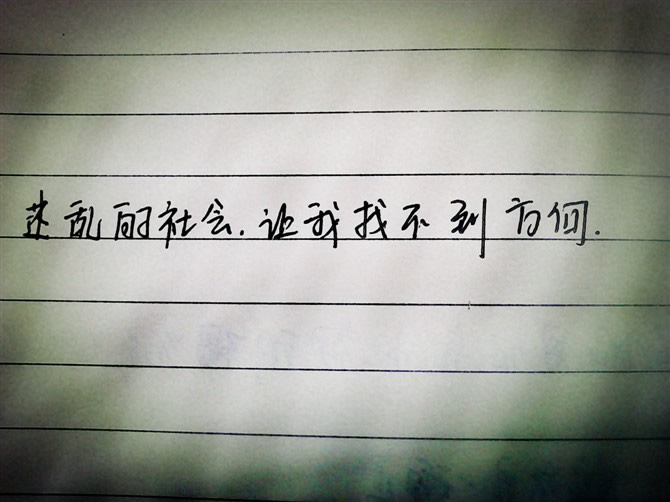 迷乱的社会.让我找不到方向.